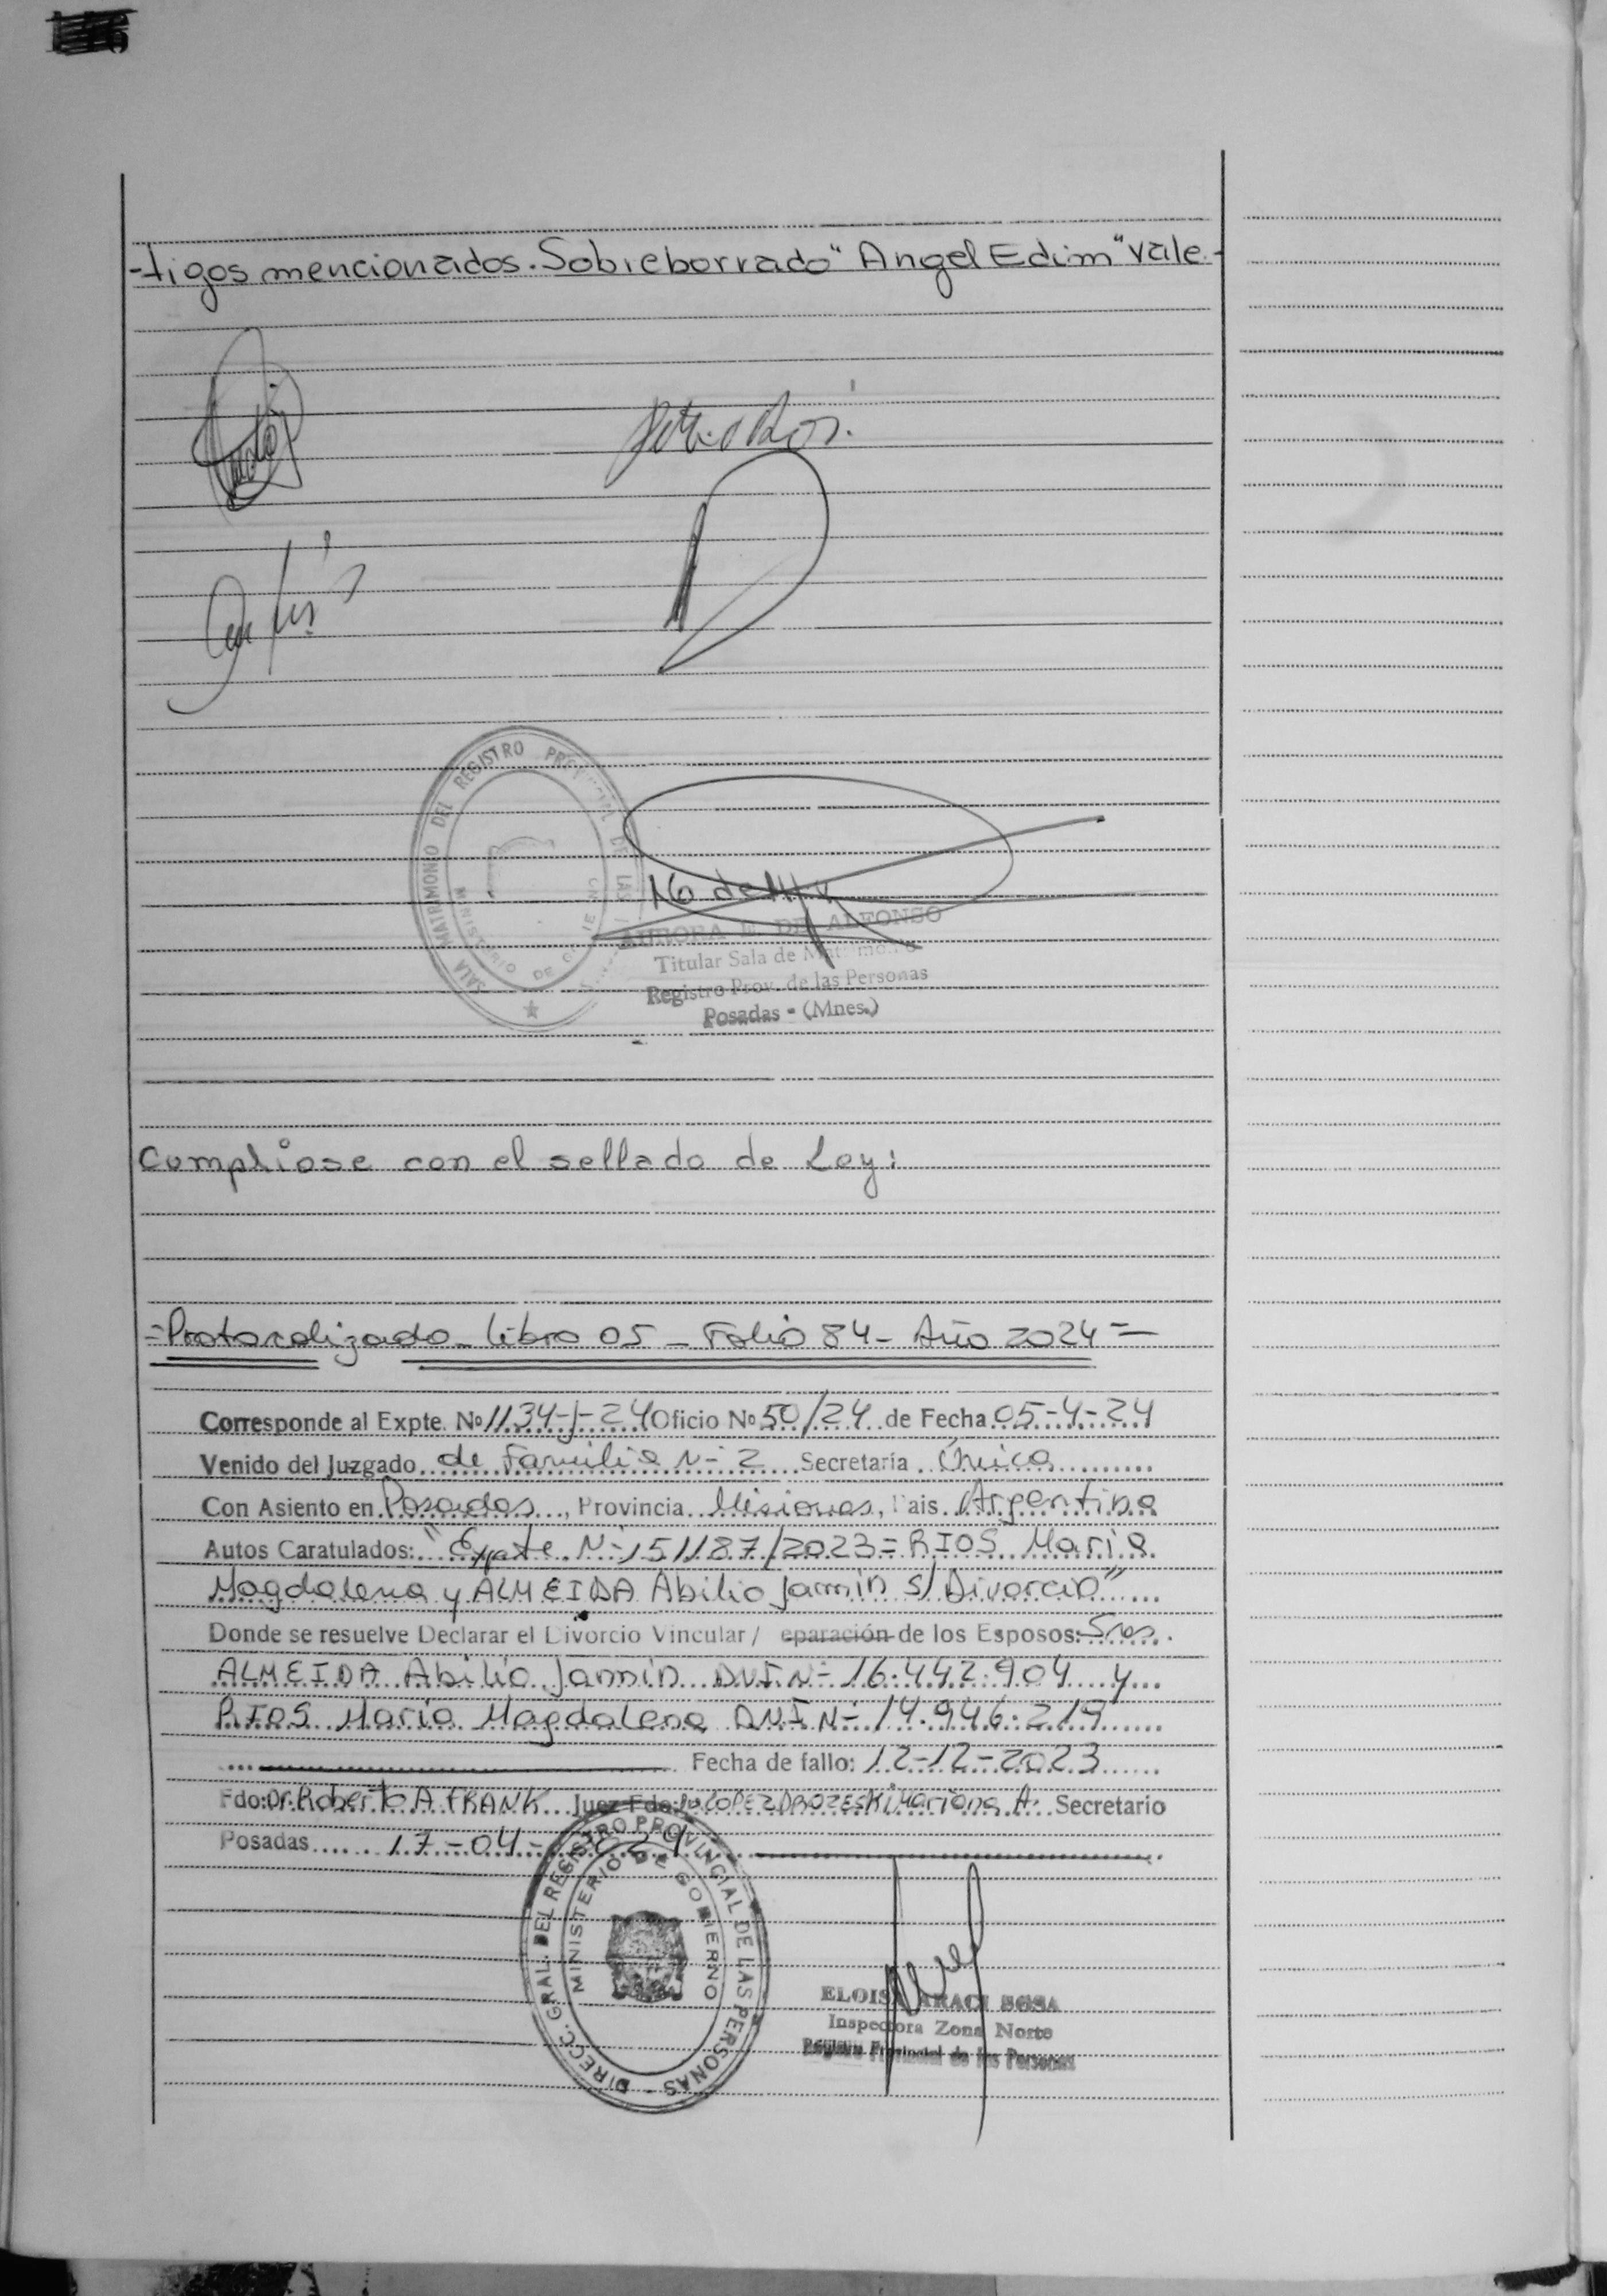 -tigos mencionados. Sobreborrado "Angel Edim" vale.-
SALA MATRIMONIO DEL REGISTRO PROVINCIAL DE LAS
MINISTERIO DE
AURORA E. DE ALFONSO
Titular Sala de Matrimonio
Registro Prov. de las Personas
Posadas - (Mnes.)
Cumpliose con el sellado de Ley:
=Protocolizado - Libro 05 - Folio 84 - Año 2024=
Corresponde al Expte. Nº 1134-J-24 Oficio Nº 50/24 de Fecha 05-4-24
Venido del Juzgado de Familia Nº 2 Secretaría Única
Con Asiento en Posadas, Provincia Misiones, Pais Argentina
Autos Caratulados: "Expte Nº 151187/2023= RIOS Maria
Magdalena y ALMEIDA Abilio Jamin s/ Divorcio"
Donde se resuelve Declarar el Divorcio Vincular/ eparación de los Esposos: Sres.
ALMEIDA Abilio Jamin DNI Nº 16.442.904 y
RIOS Maria Magdalena DNI Nº 14.946.219
Fecha de fallo: 12-12-2023
Fdo: Dr. Roberto A FRANK Juez Fdo: LOPEZ DROZESKI Mariana A. Secretario
Posadas 17-04-2024
DIRECC. GRAL. DEL REGISTRO PROVINCIAL DE LAS PERSONAS -
MINISTERIO DE GOBIERNO
ELOISA ARACI SOSA
Inspectora Zona Norte
Registro Provincial de las Personas